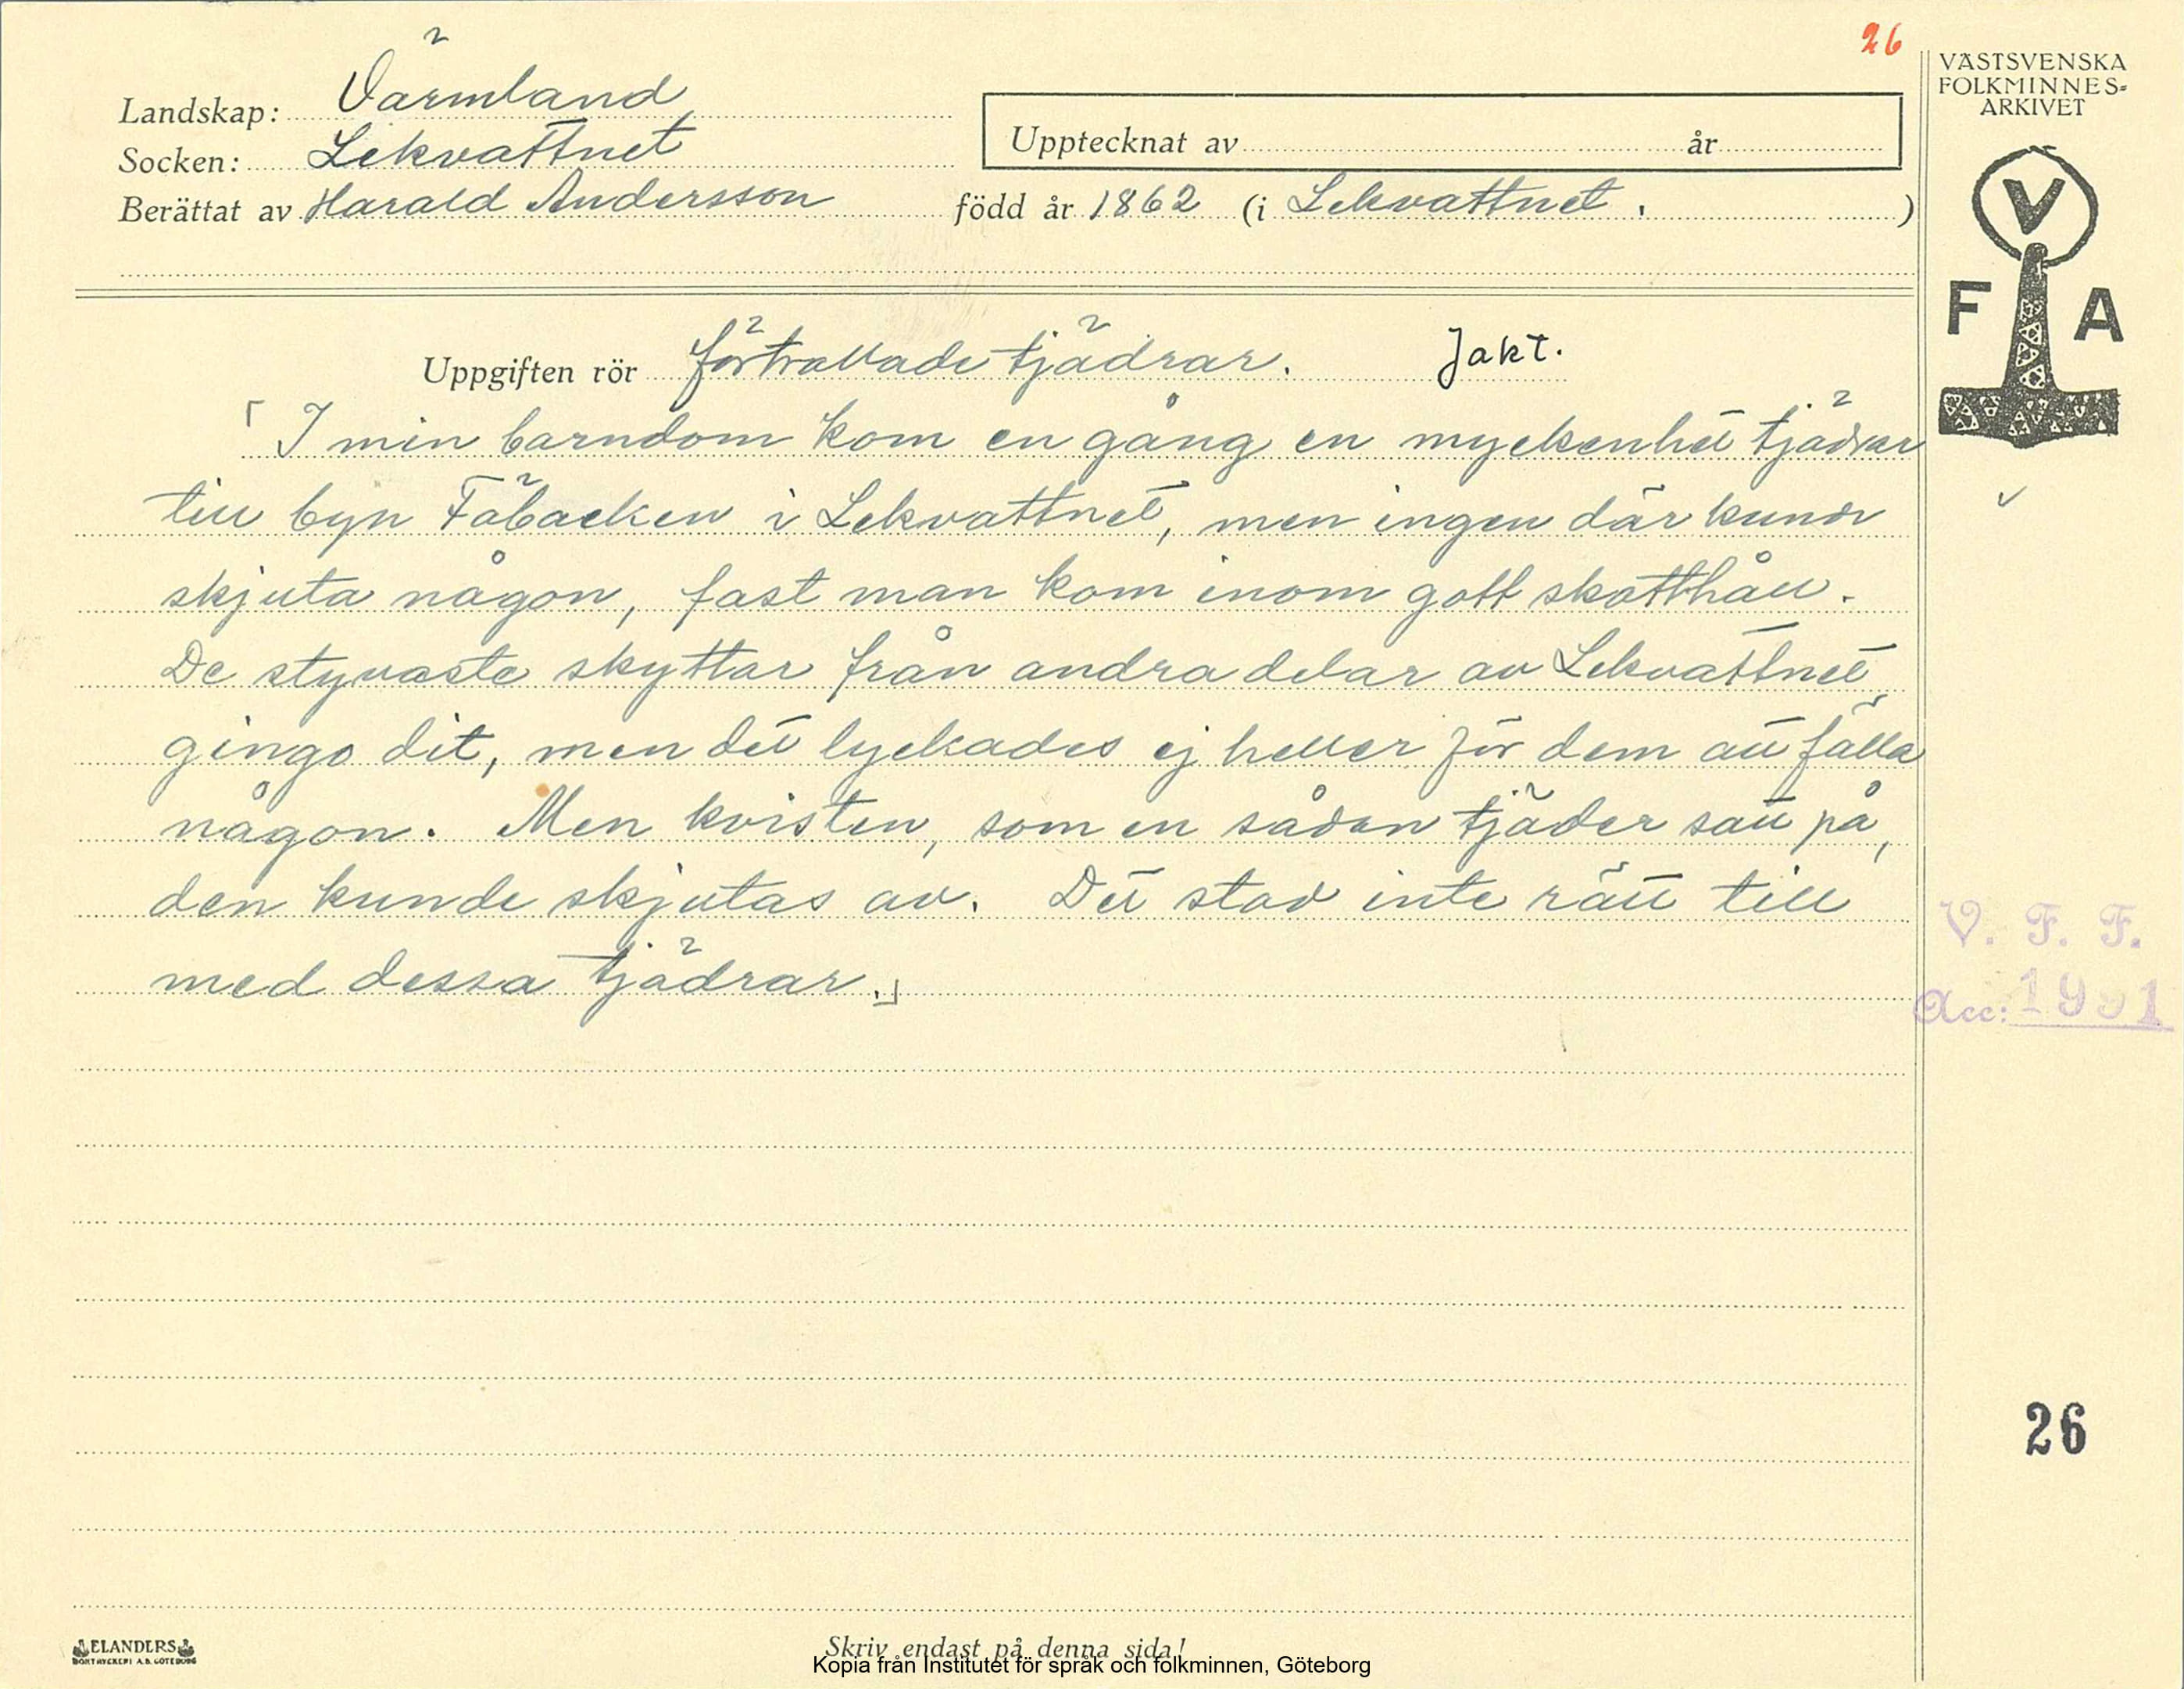 26
VÄSTSVENSKA
FOLKMINNES-
ARKIVET
Landskap: Värmland
Socken: Lekvattnet
Upptecknat av år
Berättat av Harald Andersson född år 1862 (i Lekvattnet. )
V
F A
Uppgiften rör förtrollade tjädrar. Jakt.
"I min barndom kom en gång en myckenhet tjädrar
till byn Fäbacken i Lekvattnet, men ingen där kunde
skjuta någon, fast man kom inom gott skotthåll.
De styvaste skyttar från andra delar av Lekvattnet
gingo dit, men det lyckades ej heller för dem att fälla
någon. Men kvisten, som en sådan tjäder satt på,
den kunde skjutas av. Det stod inte rätt till
med dessa tjädrar."
V. F. F.
Acc: 1991
26
ELANDERS
BOKTRYCKERI A.B. GÖTEBORG
Skriv endast på denna sida!
Kopia från Institutet för språk och folkminnen, Göteborg